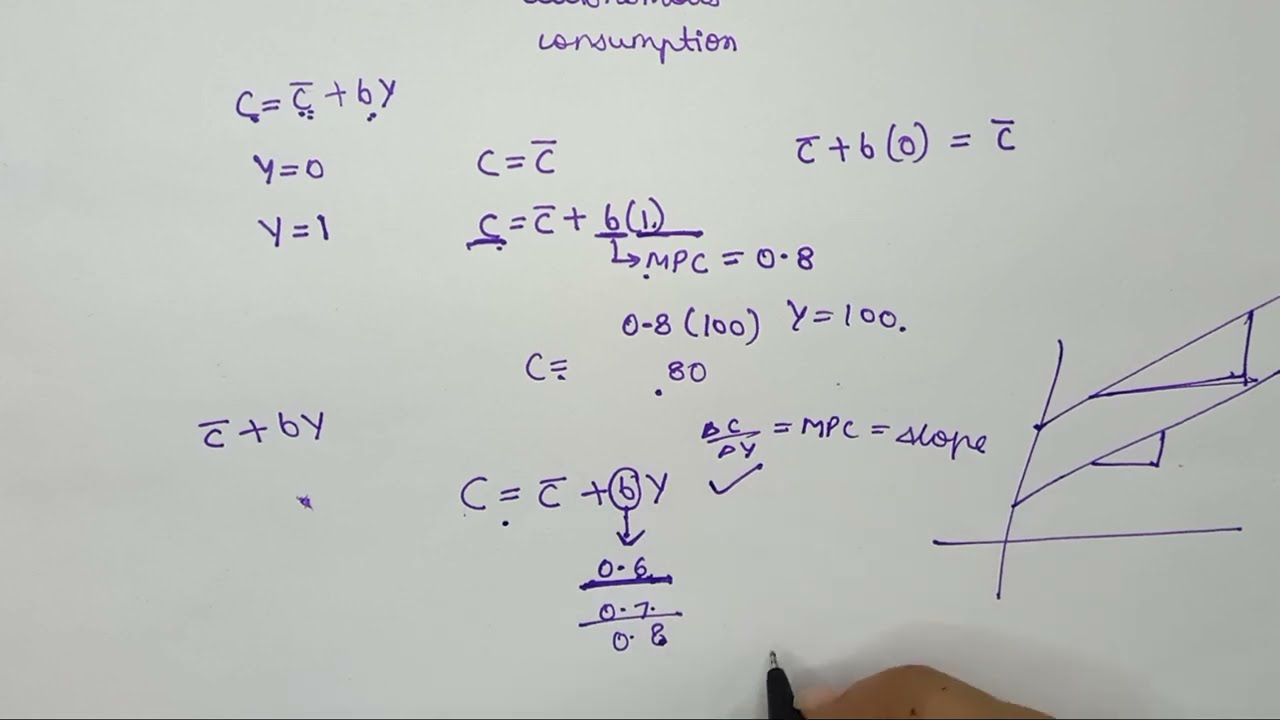 consumption
C = c̄ + bY
Y=0 C = c̄ c̄ + b(0) = c̄
Y=1 C = c̄ + b(1)
↳ MPC = 0.8
0.8 (100) Y=100.
C = 80
c̄ + bY
ΔC/ΔY = MPC = slope
C = c̄ + bY ✓
0.6
0.7
0.8